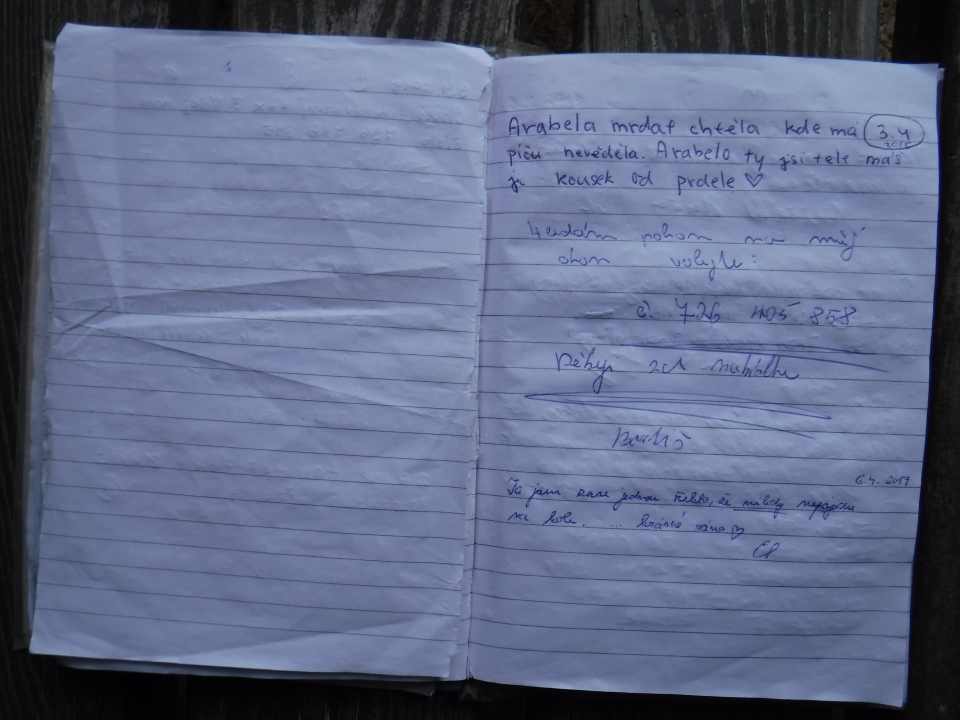 Arabela mrdat chtěla kde má 3.4
piču nevěděla. Arabelo ty jsi tele máš
ji kousek od prdele ♡
pohon na můj
ohon volejte:
č. 726 405 858
Děkuji za
6.4. 2019
Já jsem zase jednou řekla, že nikdy nepojedu
na kole. ... krásné ráno ♡